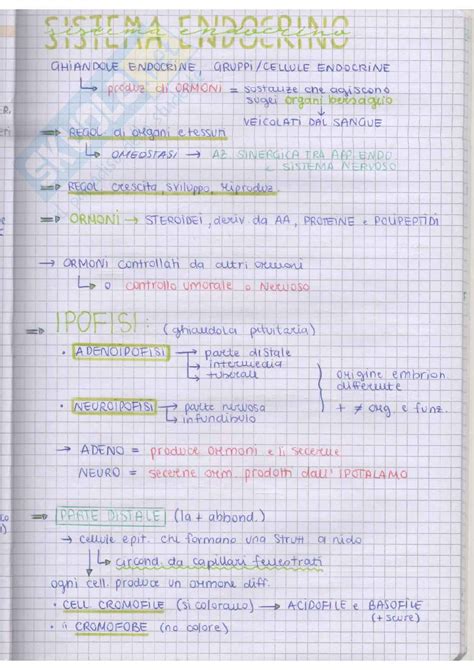 SISTEMA ENDOCRINO
sistema endocrino
GHIANDOLE ENDOCRINE, GRUPPI/CELLULE ENDOCRINE
↳ produz. di ORMONI = sostanze che agiscono
sugli organi bersaglio
↓
VEICOLATI DAL SANGUE
⇒ REGOL di organi e tessuti
↳ OMEOSTASI → AZ. SINERGICA TRA APP. ENDO
e SISTEMA NERVOSO
⇒ REGOL crescita, sviluppo, riproduz.
⇒ ORMONI → STEROIDEI, deriv. da AA, PROTEINE e POLIPEPTIDI
→ ORMONI controllati da altri ormoni
↳ o controllo umorale o Nervoso
⇒ IPOFISI: (ghiandola pituitaria)
• ADENOIPOFISI → parte distale
→ intermedia
→ tuberale
} origine embrion.
differente
+ ≠ org. e funz.
• NEUROIPOFISI → parte nervosa
→ infundibulo
→ ADENO = produce ormoni e li secerne
NEURO = secerne orm. prodotti dall'IPOTALAMO
⇒ PARTE DISTALE (la + abbond.)
→ cellule epit. che formano una strutt. a nido
↳ circond. da capillari fenestrati
ogni cell. produce un ormone diff.
• CELL CROMOFILE (si colorano) → ACIDOFILE e BASOFILE
(+ scure)
• " CROMOFOBE (no colore)